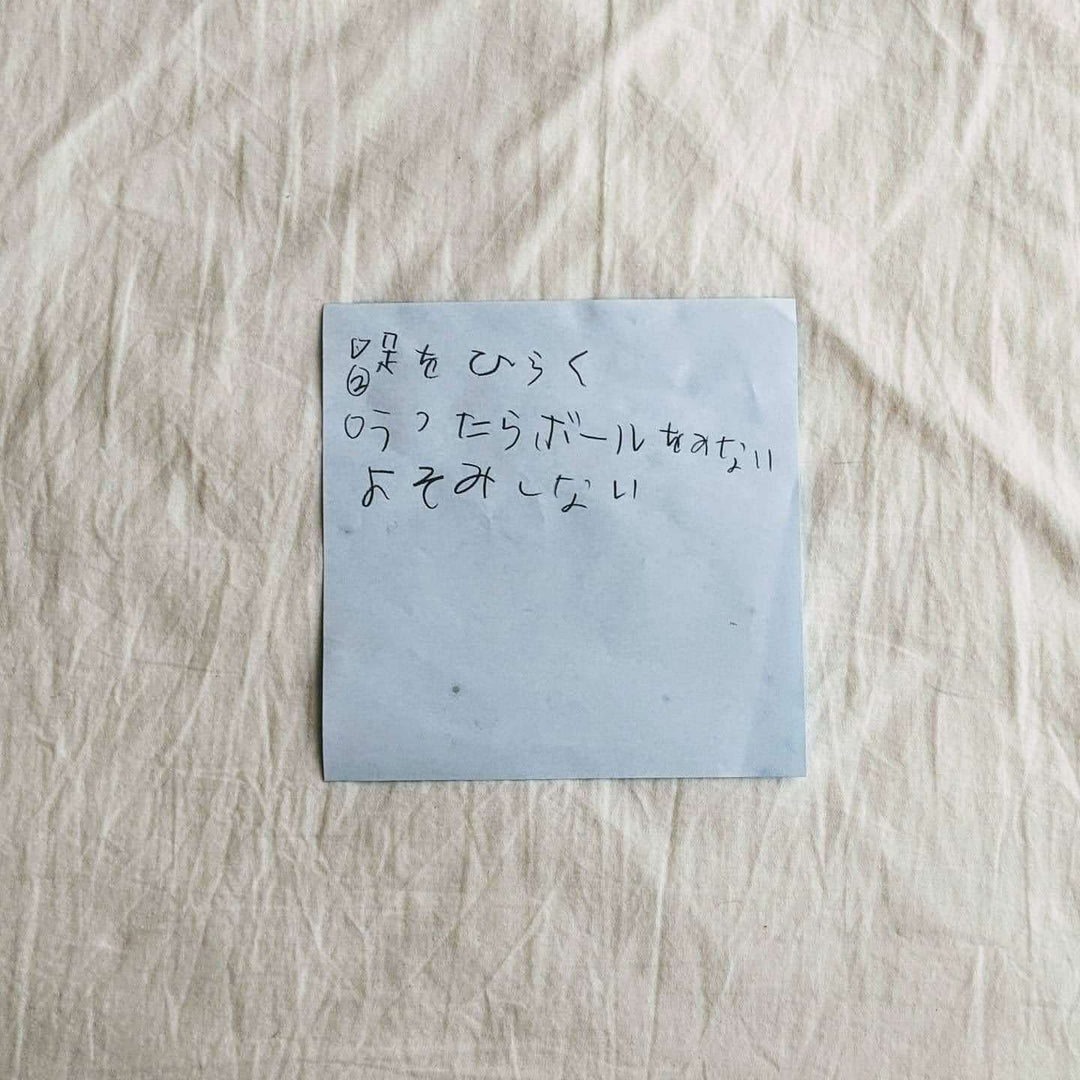 足をひらく
②
○うったらボールをみない
よそみしない